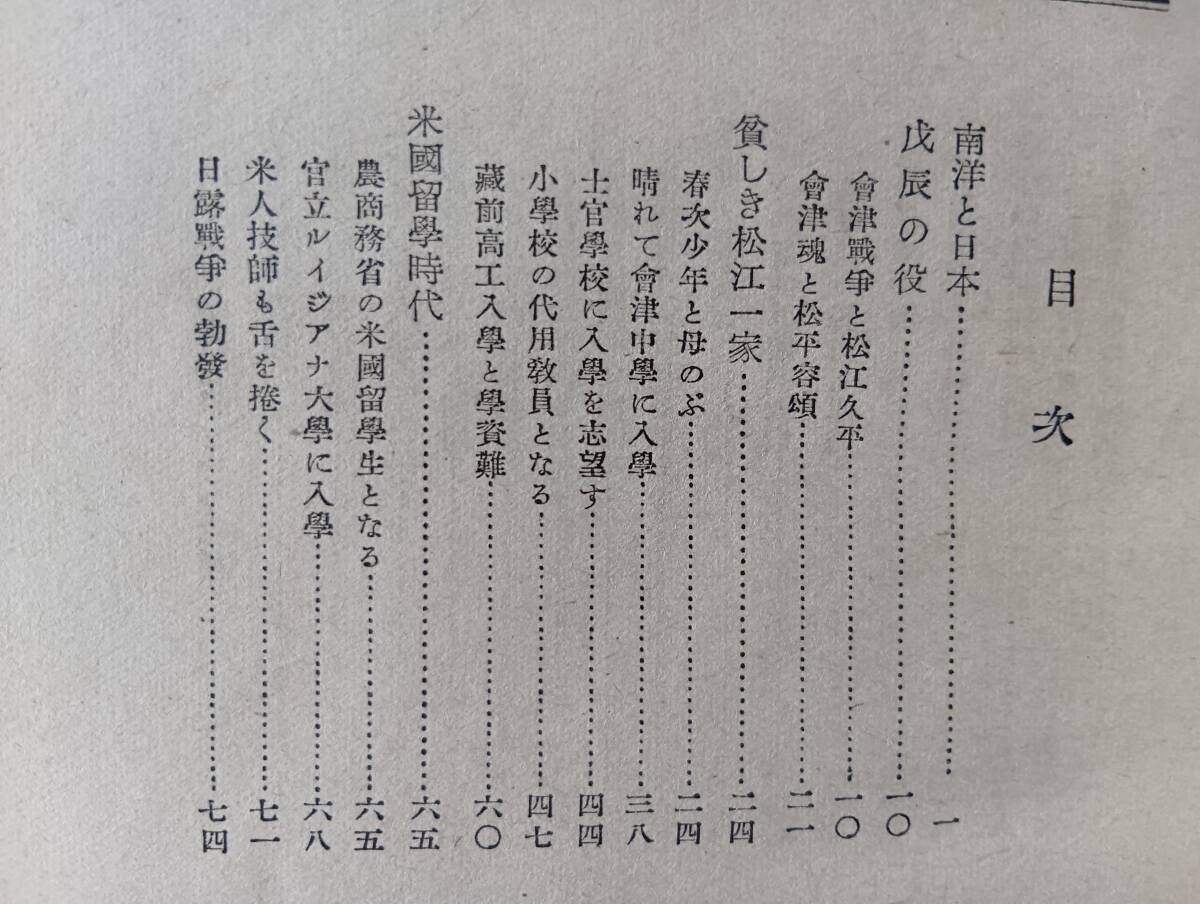 目次
南洋と日本…………………一
戊辰の役…………………一〇
會津戰爭と松江久平…………………一〇
會津魂と松平容頌…………………二一
貧しき松江一家…………………二四
春次少年と母のぶ…………………二四
晴れて會津中學に入學…………………三八
士官學校に入學を志望す…………………四四
小學校の代用教員となる…………………四七
藏前高工入學と學資難…………………六〇
米國留學時代…………………六五
農商務省の米國留學生となる…………………六五
官立ルイジアナ大學に入學…………………六八
米人技師も舌を捲く…………………七一
日露戰爭の勃發…………………七四